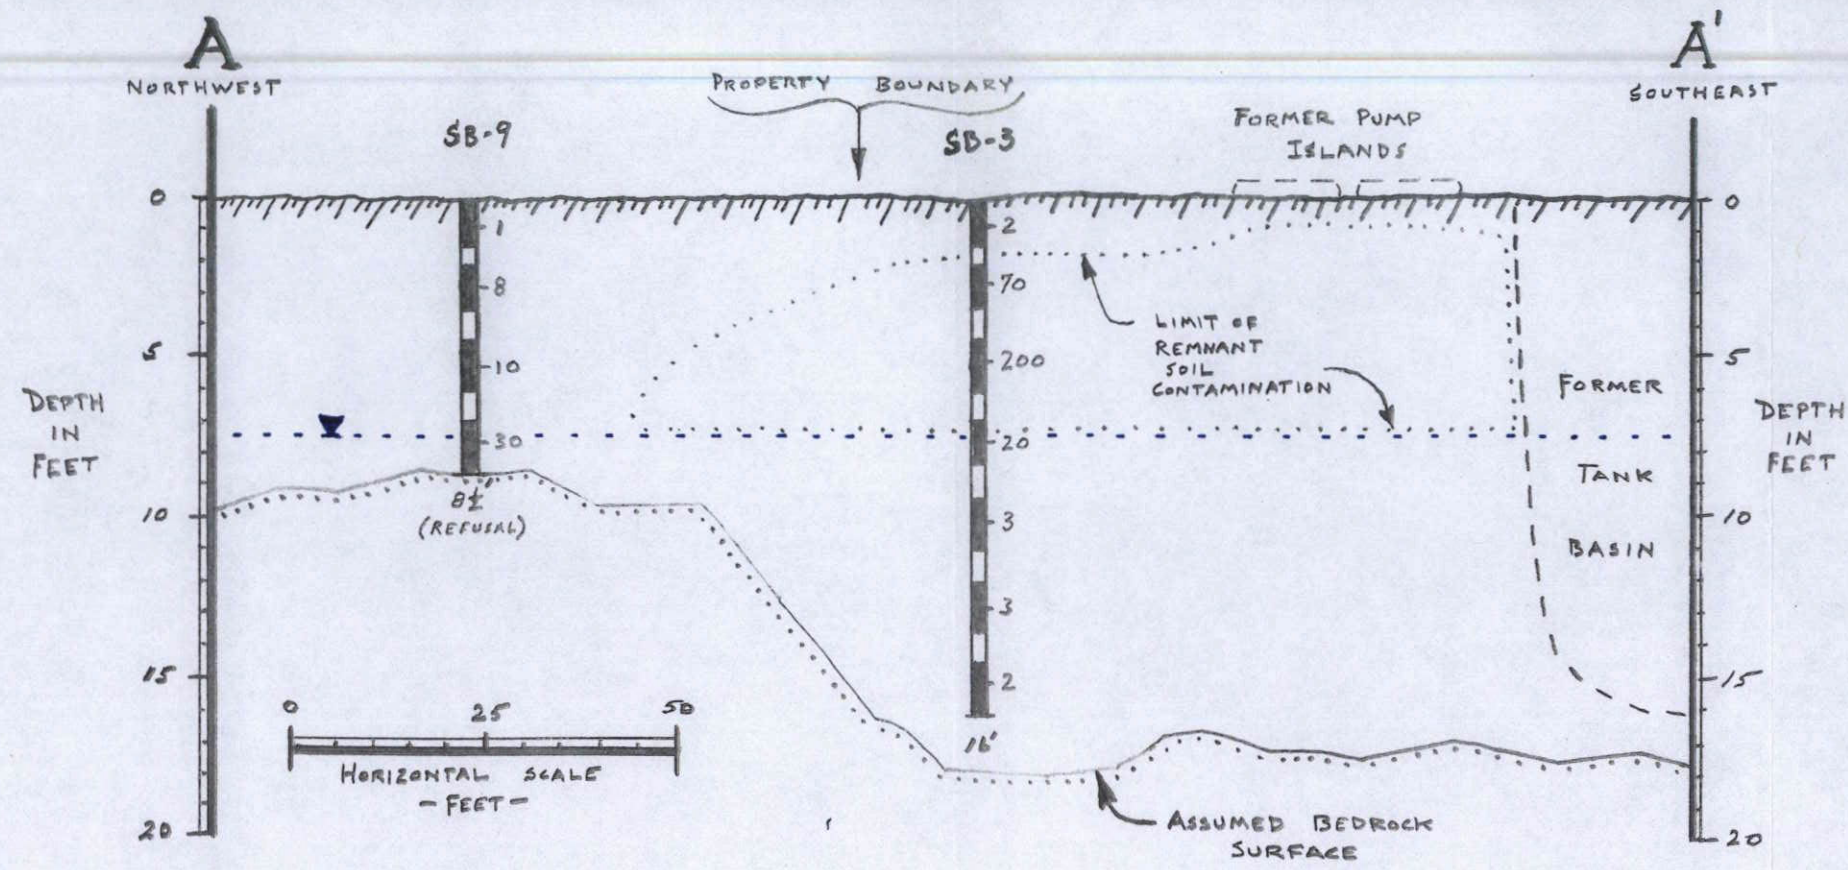 A
NORTHWEST
A'
SOUTHEAST
PROPERTY BOUNDARY
SB-9
SB-3
FORMER PUMP
ISLANDS
0
5
10
15
20
DEPTH
IN
FEET
1
8
10
30
(REFUSAL)
2
70
200
20
3
3
2
16'
LIMIT OF
REMNANT
SOIL
CONTAMINATION
FORMER
TANK
BASIN
0
5
10
15
20
DEPTH
IN
FEET
0 25 50
HORIZONTAL SCALE
- FEET -
ASSUMED BEDROCK
SURFACE